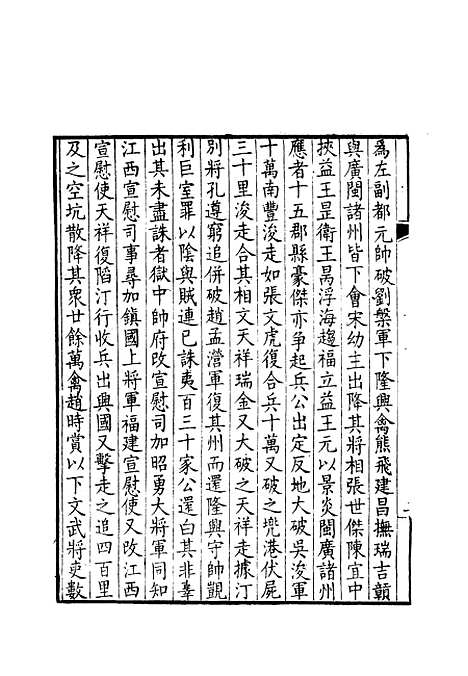 為左副都元帥破劉槃軍下隆興禽熊飛建昌撫瑞吉贛
與廣閩諸州皆下會宋幼主出降其將相張世傑陳宜中
挾益王昰衛王昺浮海趨福立益王元以景炎閩廣諸州
應者十五郡縣豪傑亦争起兵公出定反地大破吳浚軍
十萬南豐浚走如張文虎復合兵十萬又破之兠港伏屍
三十里浚走合其相文天祥瑞金又大破之天祥走據汀
別將孔遵窮追併破趙孟瀯軍復其州而還隆興守帥覶
利巨室罪以陰與賊連已誅夷百三十家公還白其非辜
出其未盡誅者獄中帥府改宣慰司加昭勇大將軍同知
江西宣慰司事尋加鎮國上將軍福建宣慰使又改江西
宣慰使天祥復陷汀行收兵出興國又擊走之追四百里
及之空坑散降其衆廿餘萬禽趙時賞以下文武將吏數